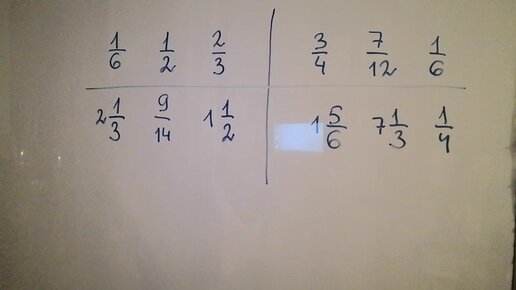 1/6 1/2 2/3 3/4 7/12 1/6
2 1/3 9/14 1 1/2 1 5/6 7 1/3 1/4